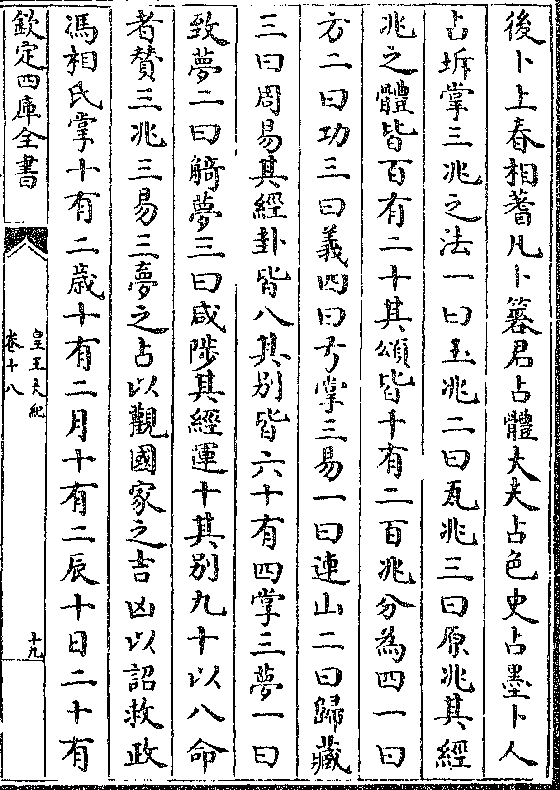 後卜上春相蓍凡卜簭君占體大夫占色史占墨卜人
占坼掌三兆之法一曰玉兆二曰瓦兆三曰原兆其經
兆之體皆百有二十其頌皆十有二百兆分為四一曰
方二曰功三曰義四曰弓掌三易一曰連山二曰歸藏
三曰周易其經卦皆八其別皆六十有四掌三夢一曰
致夢二曰觭夢三曰咸陟其經運十其別九十以八命
者贊三兆三易三夢之占以觀國家之吉凶以詔救政
馮相氏掌十有二歲十有二月十有二辰十日二十有
欽定四庫全書
皇王大紀
卷十八
十九